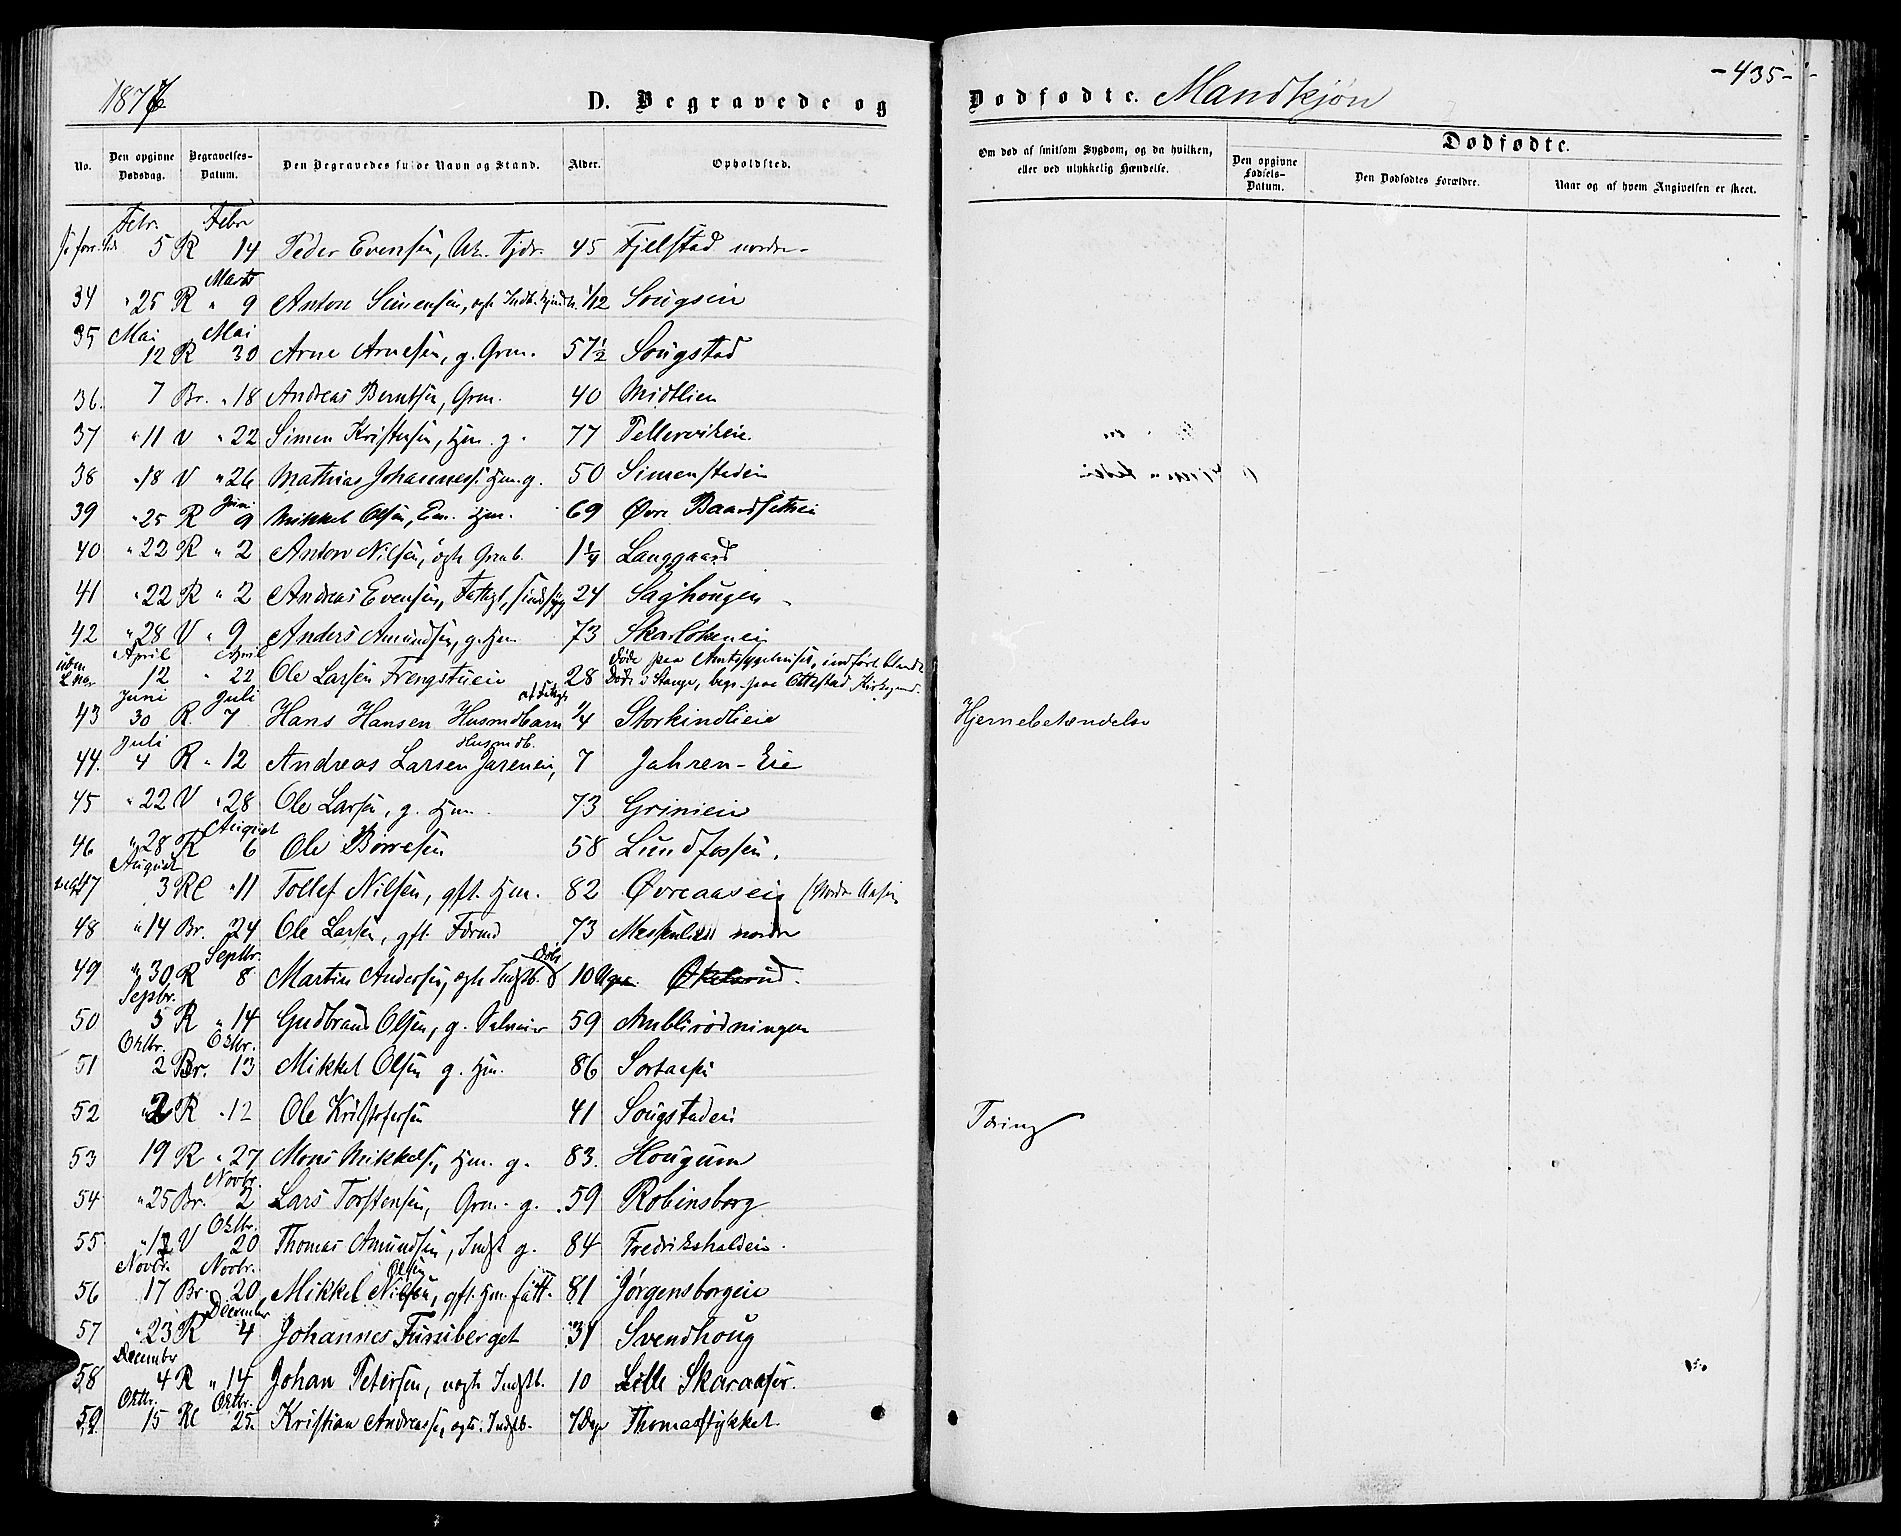 1876
D. Begravede og Dødfødte. Mandkjøn
-435-
No. Den opgivne Dødsdag. Begravelses-Datum. Den Begravedes fulde Navn og Stand. Alder. Opholdsted. Om død af smitsom Sygdom, og da hvilken, eller ved ulykkelig Hændelse. Dødfødte. Den opgivne Fødsels-Datum. Den Dødfødtes Forældre. Naar og af hvem Angivelsen er skeet.
Febr. Febr
5 R 14 Peder Evensen, 45 Fjelstad nordre
Marts
34 " 25 R " 9 Anton Simensen, 1/12 Sougeien
35 Mai Mai
12 R 30 Arne Arnesen, g. Grm. 57 1/2 Sougstad
36. 7 Br. " 18 Andreas Berntsen, Grm. 40 Midtlien
37 " 11 V " 22 Simen Kristensen, Hm. g. 77 Tellervikeie
38 " 18 V " 26 Mathias Johanness. Hm. g. 50 Simenstadeie
Juni
39 " 25 R 9 Mikkel Olsen, Em. Hm. 69 Øvre Baardsetheie
40 " 22 R " 2 Anton Nilsen, ægte Grmb. 1 1/4 Langgaard
41 " 22 R " 2 Andreas Evensen, Fattigl., sindssyg 24 Saghougen
42 " 28 V " 9 Anders Amundsen, g. Hm. 73
April April Døde paa Amtssygehuset, indført blandt
uden No. 12 " 22 Ole Larsen Frengstueie 28 Døde i Stange, begr. paa Ottestad Kirkegaard.
Juni Juli
43 30 R 7 Hans Hansen Husmdbarn 1/4 Storkindlieie Hjernebetændelse
Juli Husmdb.
44. 4 R " 12 Andreas Larsen Jareneie, 7 Jahren-Eie
45 " 22 V " 28 Ole Larsen, g. Hm. 73 Grinieie
August
46 " 28 R 6 Ole Børresen 58 Lundfossen.
August
47 3 Rl " 11 Tollef Nilsen, gft. Hm. 82 Øvreaaseie
48 " 14 Br. 24 Ole Larsen, gft. 73 nordre
Septbr.
49 " 30 R 8 Martin Andersen, ægte Indstb. 10 Økelsrud.
Sepbr.
50 5 R " 14 Gudbrand Olsen, g. 59 Amblirødningen
Oktbr. Oktbr.
51 2 Br. 13 Mikkel Olsen g. Hm. 86 Sortaasen
52 " 2 R " 12 Ole Kristofersen 41 Sougstadeie Tæring
53 19 R " 27 Mons Mikkels., Hm. g. 83. Hougum
Novbr.
54 " 25 Br. 2 Lars Torstensen, Grm. g. 59 Robinsborg
Oktbr.
55 " 12 V 20 Thomas Amundsen, Indst g. 84 Fredrikshaldeie.
Novbr. Novbr. Olsen
56 17 Br. 20 Mikkel Nilsen, gft. Hm. fatt. 81 Jørgensborgeie
December
57 " 23 R 4 Johannes Furuberget 31 Svendhoug
December
58 4 R " 14 Johan Petersen, uægte Indstb. 10 Lille Skaraaser.
Oktbr. Oktbr.
59 15 Rl 25. Kristian Andreass., ægte. Indstb. 7 Dage Thomasstykket.